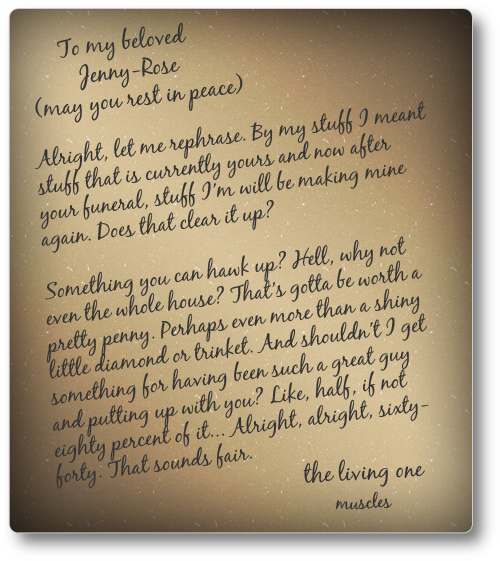 To my beloved
Jenny-Rose
(may you rest in peace)
Alright, let me rephrase. By my stuff I meant
stuff that is currently yours and now after
your funeral, stuff I'm will be making mine
again. Does that clear it up?
Something you can hawk up? Hell, why not
even the whole house? That's gotta be worth a
pretty penny. Perhaps even more than a shiny
little diamond or trinket. And shouldn't I get
something for having been such a great guy
and putting up with you? Like, half, if not
eighty percent of it... Alright, alright, sixty-
forty. That sounds fair.
the living one
muscles